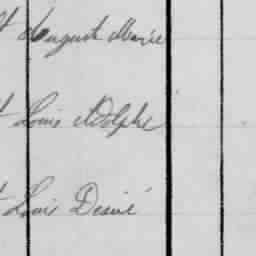 t Auguste Marie
t Louis Adolphe
t Louis Désiré